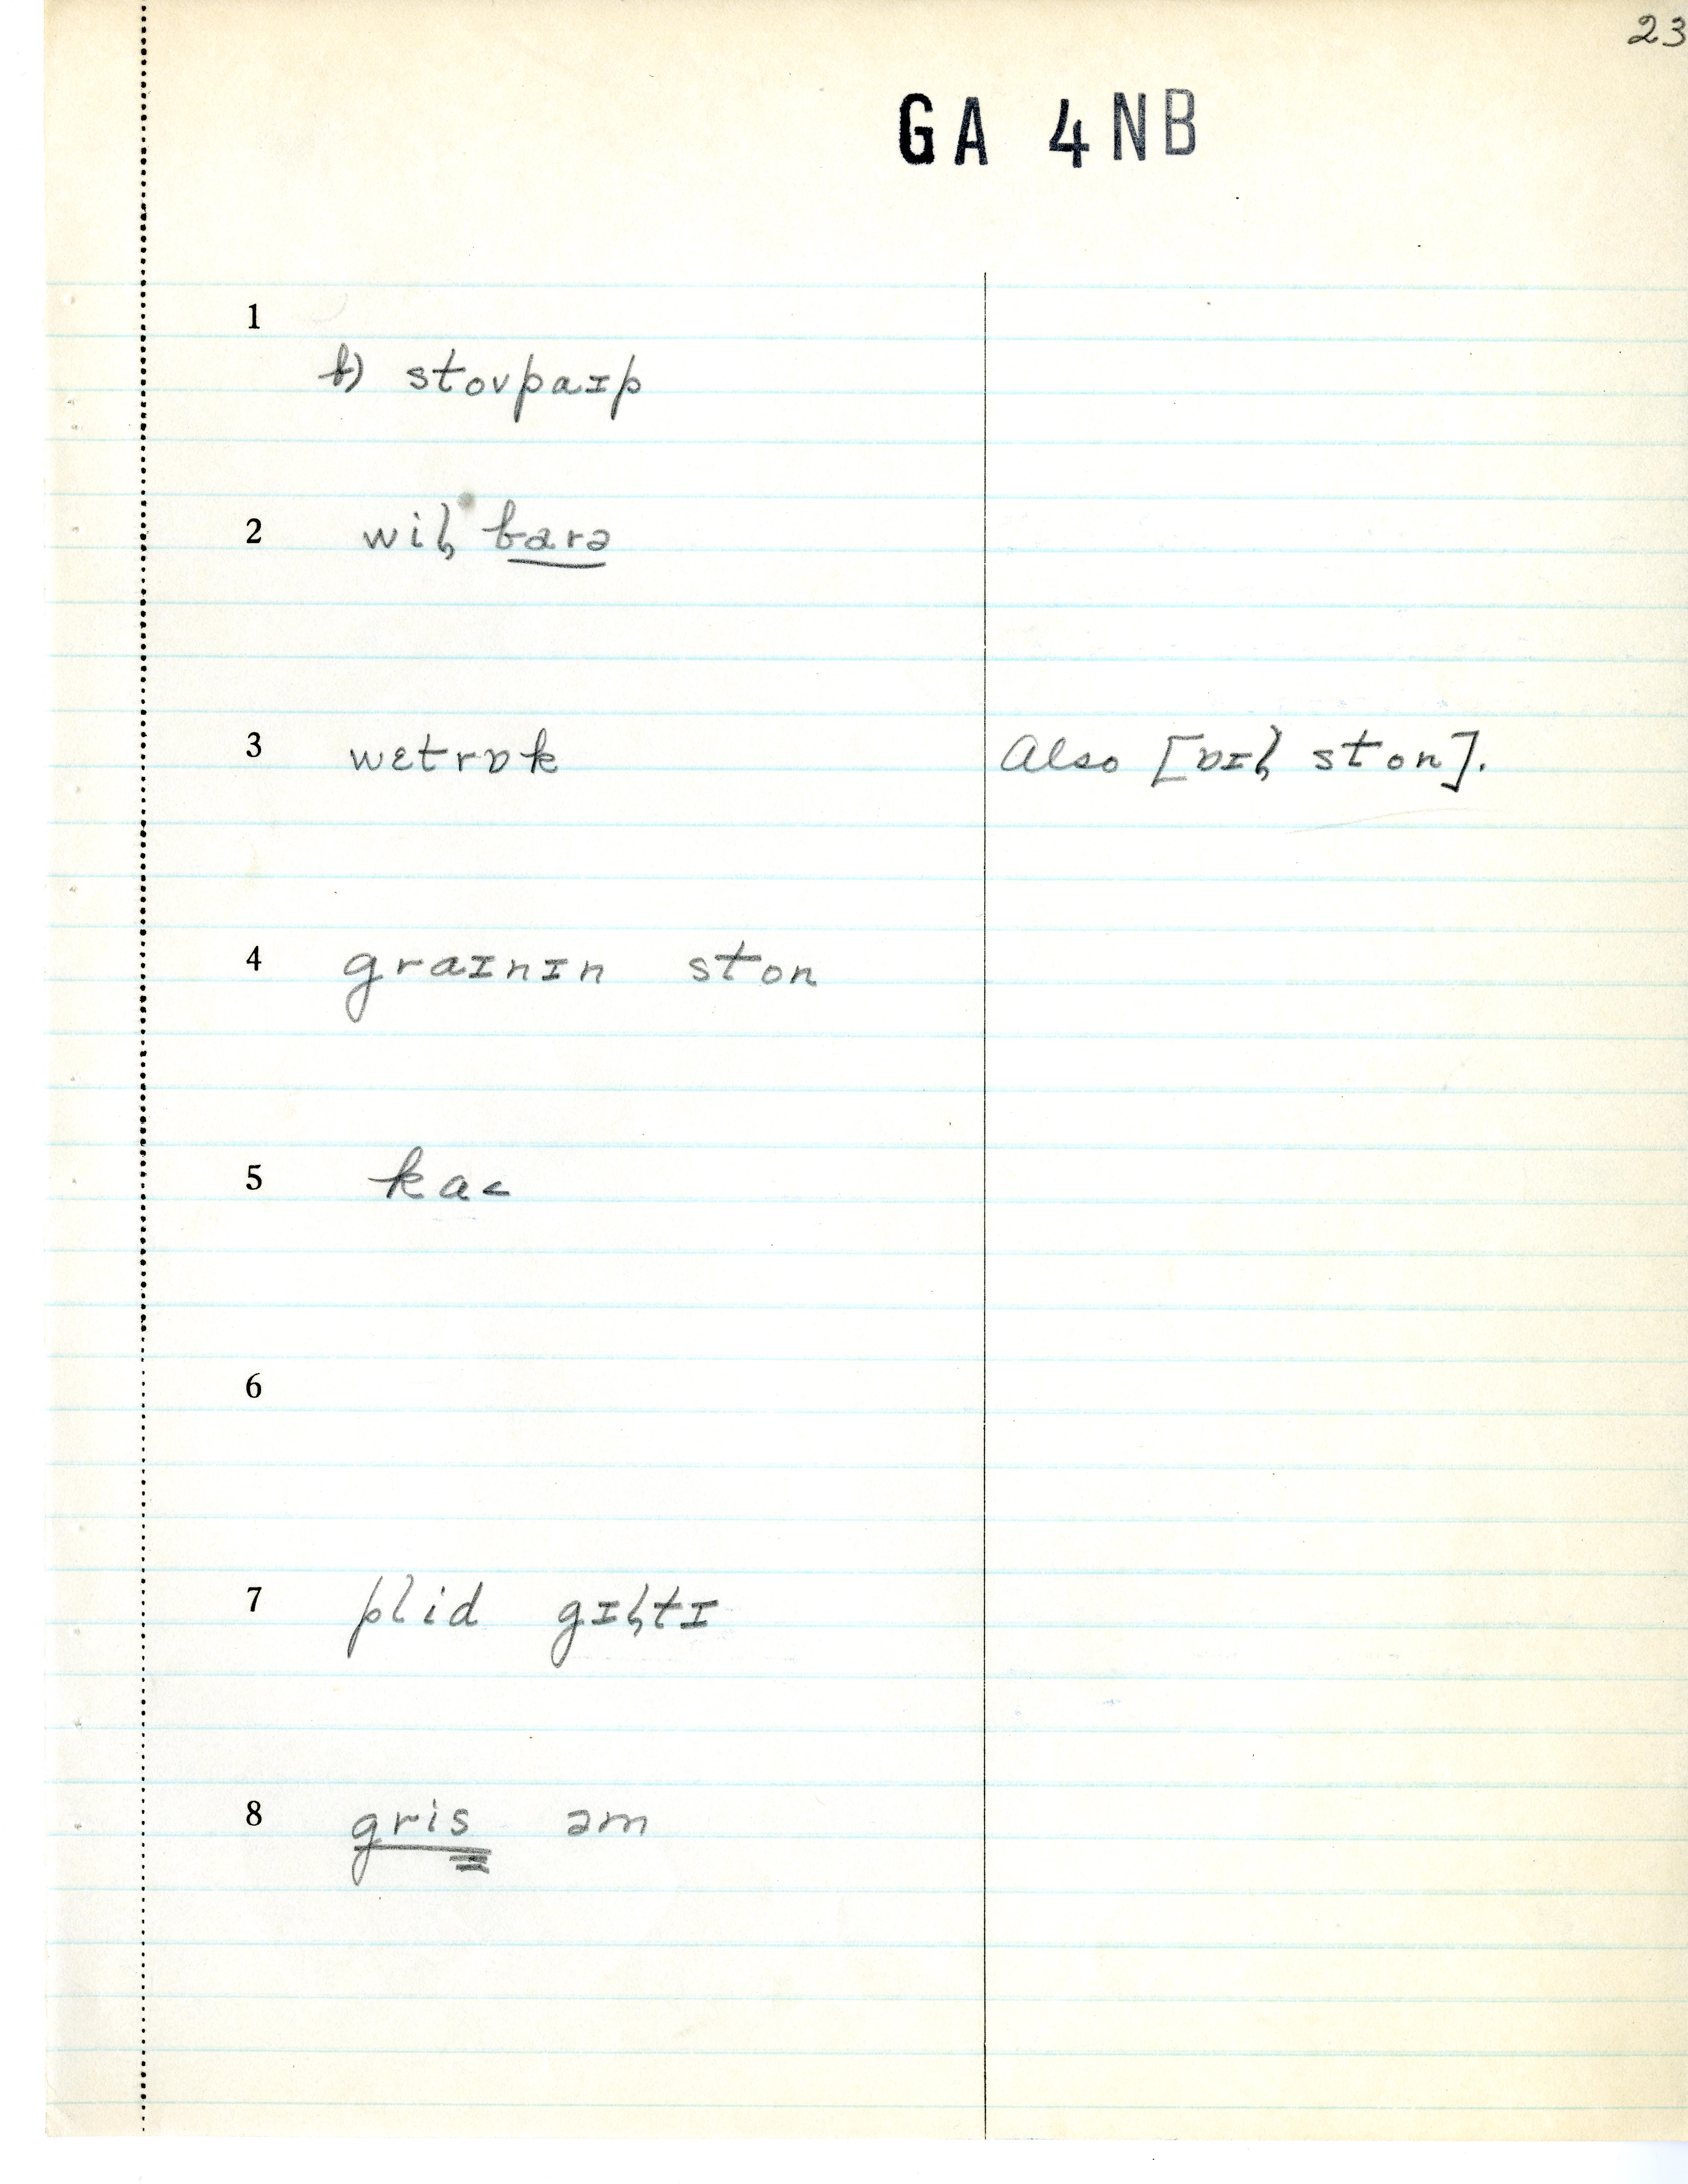 23
GA 4NB
1
b) stovpaɪp
2 wiɫ barə
3 wɛtrɒk Also [ɒɪɫ ston].
4 graɪnɪn ston
5 kac
6
7 plid gɪɫtɪ
8 gris əm